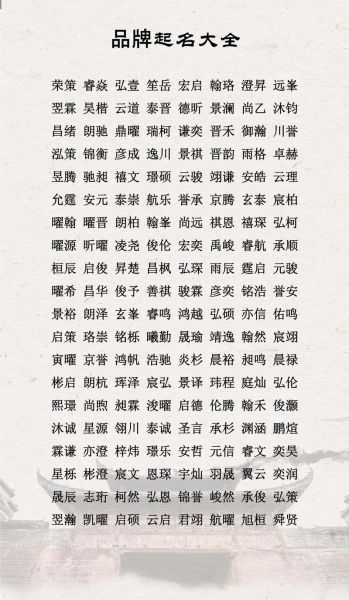 品牌起名大全
荣策 睿焱 弘壹 笙岳 宏启 翰珞 澄昇 远峯
翌霖 昊楷 云道 泰晋 德昕 景澜 尚乙 沐钧
昌绪 朗驰 鼎曜 瑞柯 谦奕 晋禾 御瀚 川誉
泓策 锦衡 彦成 逸川 景祺 晋韵 雨格 卓赫
昱腾 驰昶 禧文 璟硕 云骏 翊谦 安皓 云理
允霆 安元 泰崇 航乐 誉承 京腾 玄泰 宸柏
曜翰 曜晋 朗柏 翰峯 尚远 祺恩 禧琛 弘柯
曜源 昕曜 凌尧 俊伦 宏奕 禹峻 睿航 承顺
桓辰 启俊 昇楚 昌枫 弘琛 雨辰 霆启 元骏
曜希 昌华 俊予 善祺 骏霖 彦奕 铭浩 誉安
景裕 朗泽 玄峯 睿鸣 鸿越 弘硕 亦信 佑鸣
启策 珞崇 铭栎 曦勤 晟瑜 靖逸 翰然 宸翊
寅曜 京誉 鸿帆 浩驰 炎杉 晨裕 昶鸣 晨禄
彬启 朗杭 珲泽 宸弘 景译 玮程 庭灿 弘伦
熙璟 尚煦 昶霖 浚曜 启德 伦腾 翰禾 俊灏
沐诚 星源 翎川 泰诚 圣言 承杉 渊涵 鹏煊
霖谦 亦澄 梓炜 璟乐 安哲 元信 睿文 奕昊
星栎 彬澄 宸文 恩琛 宇灿 羽晟 翼云 奕润
晟辰 志珩 柯然 弘恩 锦誉 峻然 承俊 弘策
翌瀚 凯曜 启硕 云启 君翊 航曜 旭桓 舜贤